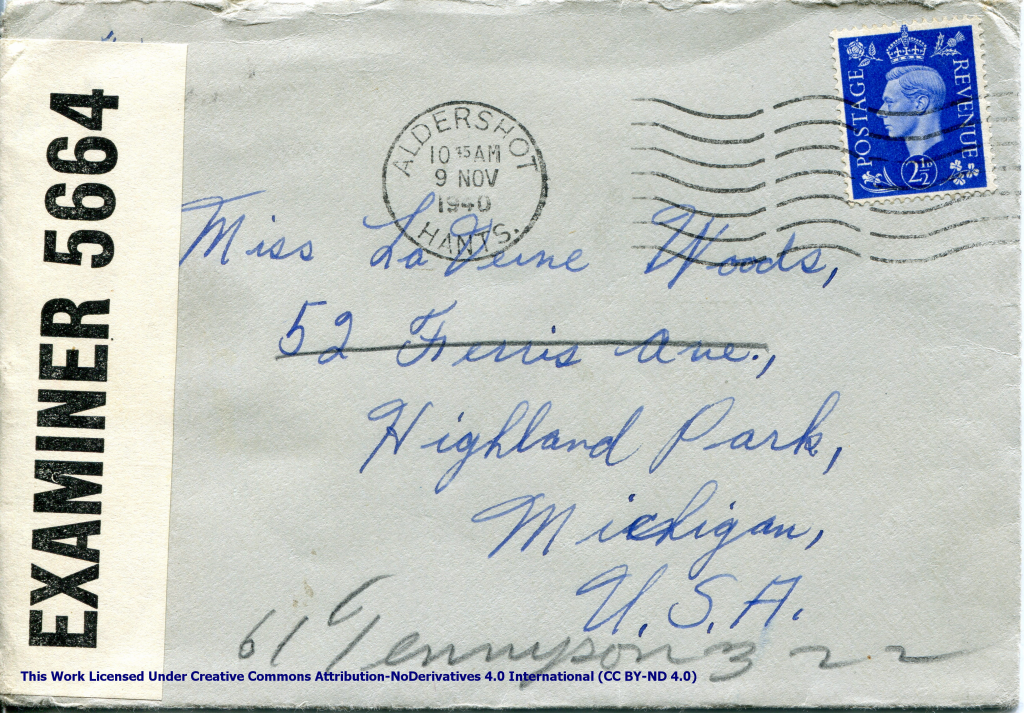 EXAMINER 5664
POSTAGE REVENUE
2½D
ALDERSHOT
10 15 AM
9 NOV
1940
HANTS.
Miss LaVerne Woods,
52 Ferris Ave.,
Highland Park,
Michigan,
U.S.A.
61 Tennyson 3
This Work Licensed Under Creative Commons Attribution-NoDerivatives 4.0 International (CC BY-ND 4.0)